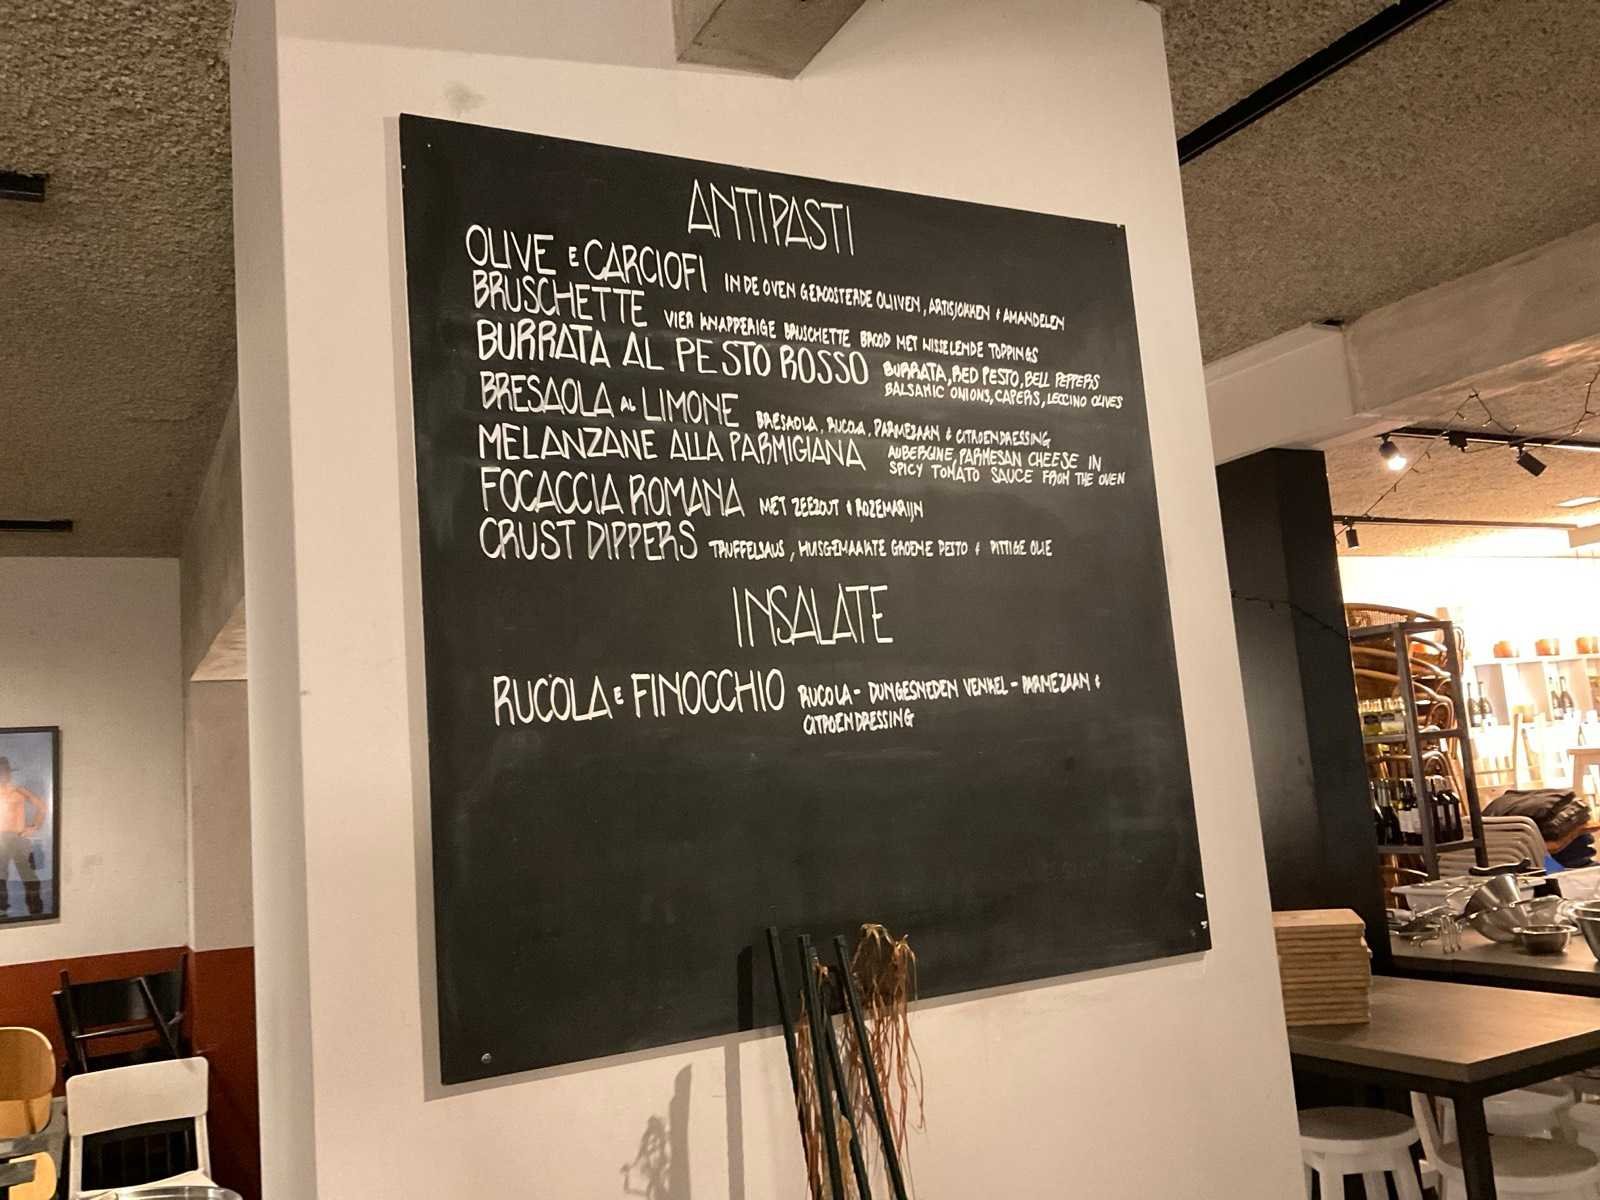 ANTIPASTI
OLIVE E CARCIOFI IN DE OVEN GEROOSTERDE OLIJVEN, ARTISJOKKEN & AMANDELEN
BRUSCHETTE VIER KNAPPERIGE BRUSCHETTE BROOD MET WISSELENDE TOPPINGS
BURRATA AL PESTO ROSSO BURRATA, RED PESTO, BELL PEPPERS
BALSAMIC ONIONS, CAPERS, LECCINO OLIVES
BRESAOLA AL LIMONE BRESAOLA, RUCOLA, PARMEZAAN & CITROENDRESSING
MELANZANE ALLA PARMIGIANA AUBERGINE, PARMESAN CHEESE IN
SPICY TOMATO SAUCE FROM THE OVEN
FOCACCIA ROMANA MET ZEEZOUT & ROZEMARIJN
CRUST DIPPERS TRUFFELSAUS, HUISGEMAAKTE GROENE PESTO & PITTIGE OLIE
INSALATE
RUCOLA E FINOCCHIO RUCOLA - DUNGESNEDEN VENKEL - PARMEZAAN &
CITROENDRESSING